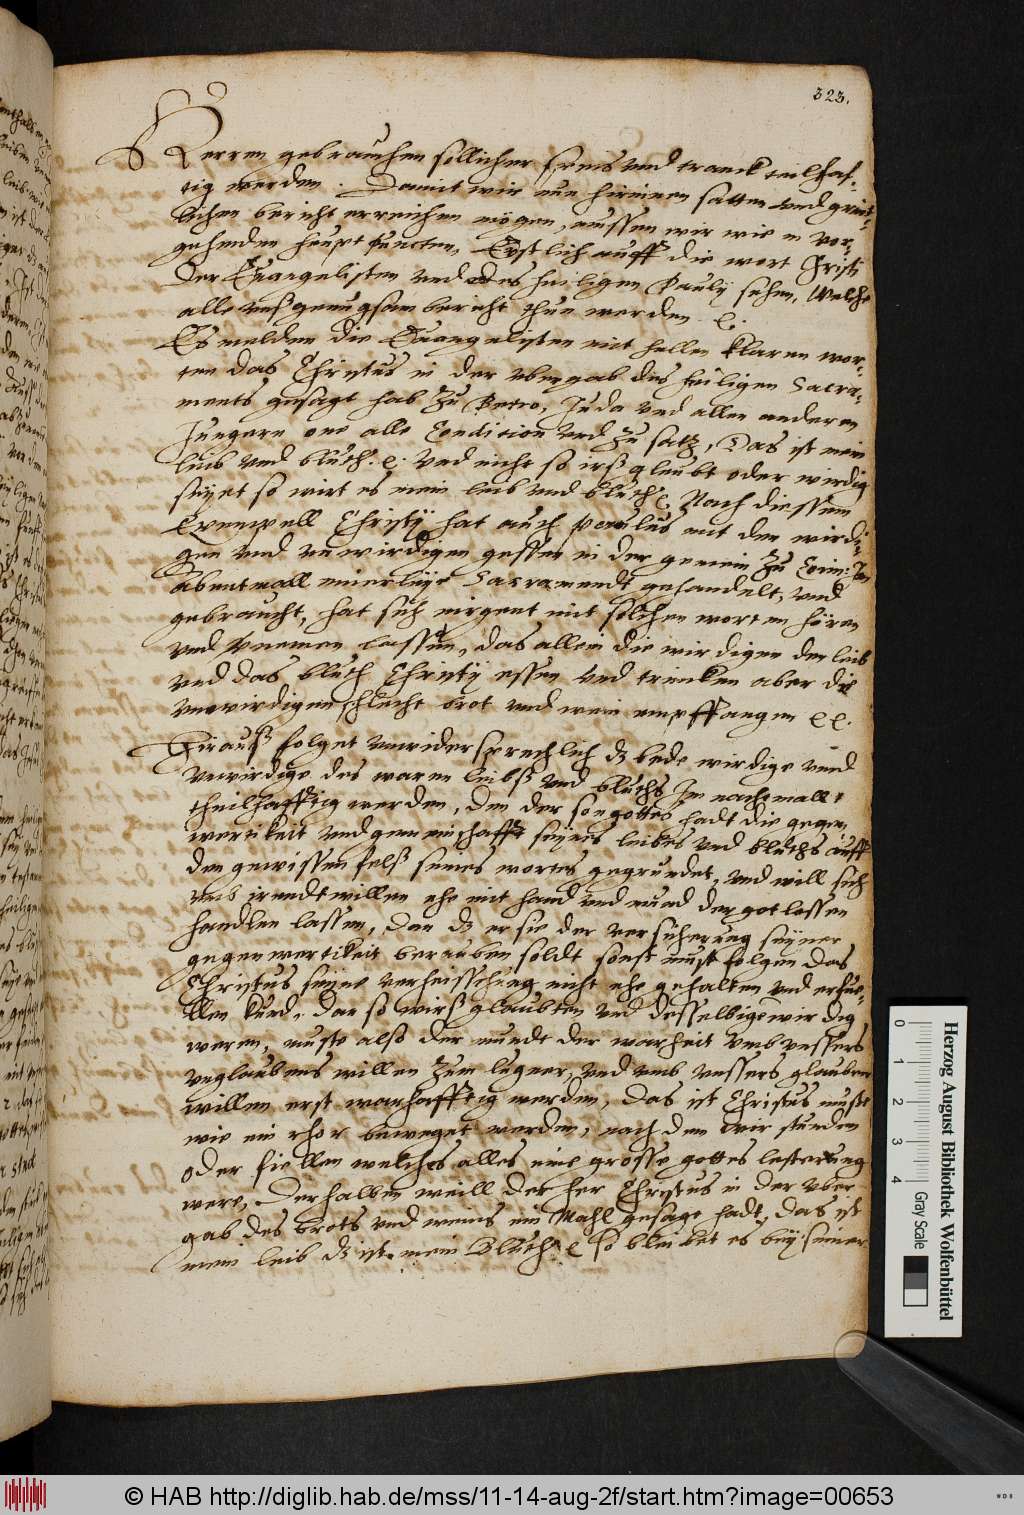 323.
Herren gebrauchen sollicher speis vnd tranck teilhaf-
tig werden. Damit wir nun hirinnen satten vnd grünt-
lichen bericht erreichen mögen, mussen wir wie in vor-
gehenden heupt puncten, Erstlich auff die wort Christi
Der Euangelisten vnd des heiligen Pauly sehen, Welche
alle vns genugsam bericht thun werden
Es melden die Euangelisten mit hellen klaren wor-
ten das Christus in der vbergab des heiligen Sacra-
ments gesagt hab zu Petro, Juda vnd allen anderen
Jungern one alle Condition vnd zu satz, Das ist mein
leib vnd bluth. vnd nicht so irß gleubt oder wirdig
seiyet so wirt es mein leib vnd bluth Nach diessem
Exempell Christÿ hat auch Paulus mit den wirdi-
gen vnd vnwirdigen gesten in der gemein zu Corin: Im
Abentmall einerleÿe Sacrament gehandelt, vnd
gebraucht, hat sich nirgent mit solchen worten hören
vnd vernemen lassen, das allein die wirdigen den leib
vnd das bluth Christÿ essen vnd trincken aber die
vnwirdigen schlecht brot vnd wein empffangen
Hirauß folget vnwidersprechlich dz bede wirdige vnnd
vnwirdige des waren leibß vnd bluths Im nachtmall
theilhafftig werden, den der son gottes hadt die gegen
wertikeit vnd gemeinschafft seÿnes leibes vnd bluths auff
den gewissen felß seines wortes gegrundet, vnd will sich
vmb irendt willen ehe mit hand vnd mund der gotlossen
handlen lassen, dan dz er sie der versicherung seÿner
gegenwertikeit berauben soldt sonst must folgen das
Christus seyne verheisschung nicht ehe gehalten vnd erfue-
llen kund, dan so wirß glaubten vnd desselbige wirdig
weren, muste also der mundt der warheit vmb vnssers
vnglaubens willen zum lugner, vnd vmb vnssers glauben
willen erst warhafftig werden, das ist Christus muste
wie ein rhor beweget werden, nach dem wir stunden
oder fiellen welches alles eine grosse gottes lesterung
were, Derhalben weill der her Christus in der vber
gab des brots vnd weins ein Mahl gesagt hadt, das ist
mein leib dz ist mein Bluth so bleibet es beÿ seiner
Herzog August Bibliothek Wolfenbüttel
0 1 2 3 4
Gray Scale
© HAB http://diglib.hab.de/mss/11-14-aug-2f/start.htm?image=00653